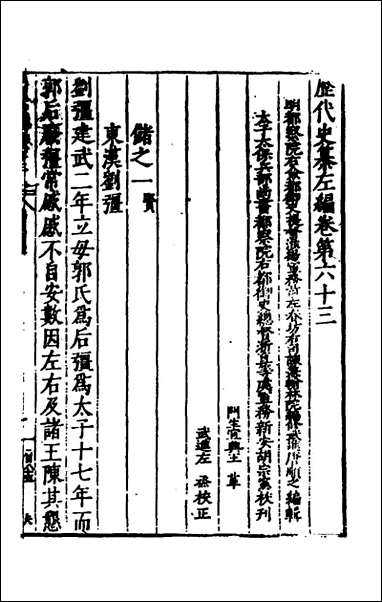 歷代史纂左編卷第六十三
明都察院右僉都御史提督淮揚軍務前左春坊右司諫兼翰林院編修武進唐順之編輯
太子太保兵部尚書都察院右都御史總督浙直等處軍務新安胡宗憲校刊
門生宜興王革
武進左烝校正
儲之一賢
東漢劉彊
劉彊建武二年立母郭氏為后彊為太子十七年而
郭后廢彊常慼慼不自安數因左右及諸王陳其懇